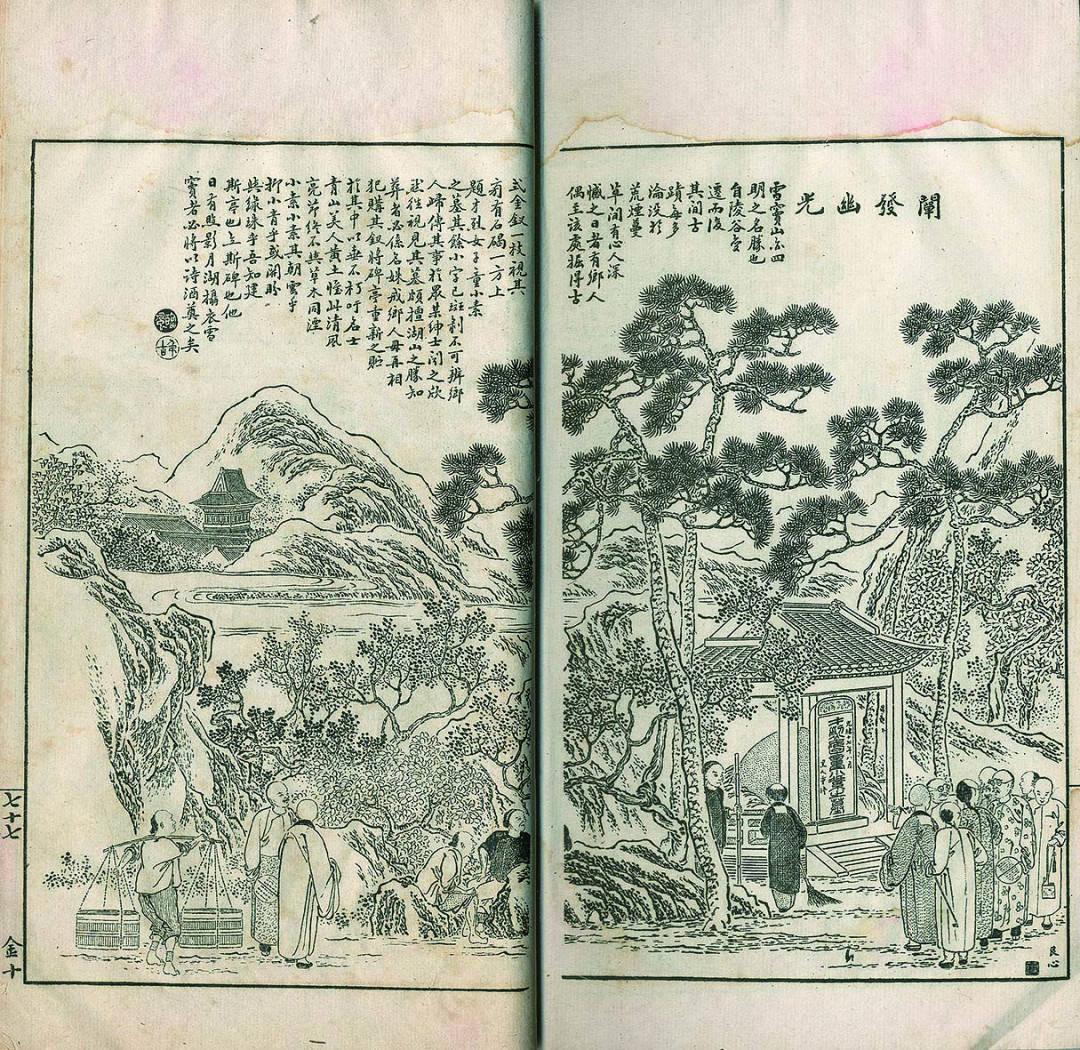 闡發幽光
雪竇山為四
明之名勝也
自陵谷變
遷而後
其間古
蹟每多
淪沒於
荒煙蔓
草間有心人深
憾之日者有鄉人
偶至該處掘得古
式金釵一枝視其
旁有石碣一方上
題才烈女子童小素
之墓其餘小字已斑剝不可辨鄉
人歸傳其事於眾某紳士聞之欣
然往視見其墓頗擅湖山之勝知
葬者必係名姝戒鄉人毋再相
犯購其釵將碑亭重新之貯
於其中以垂不朽吁名士
青山美人黃土惟此清風
亮節終不與草木同湮
小素小素其朝雲乎
抑小青乎或關盼〃
與綠珠乎吾知建
斯亭也立斯碑也他
日有照影月湖攝衣雪
竇者必將以詩酒奠之矣
良心
七十七
金十